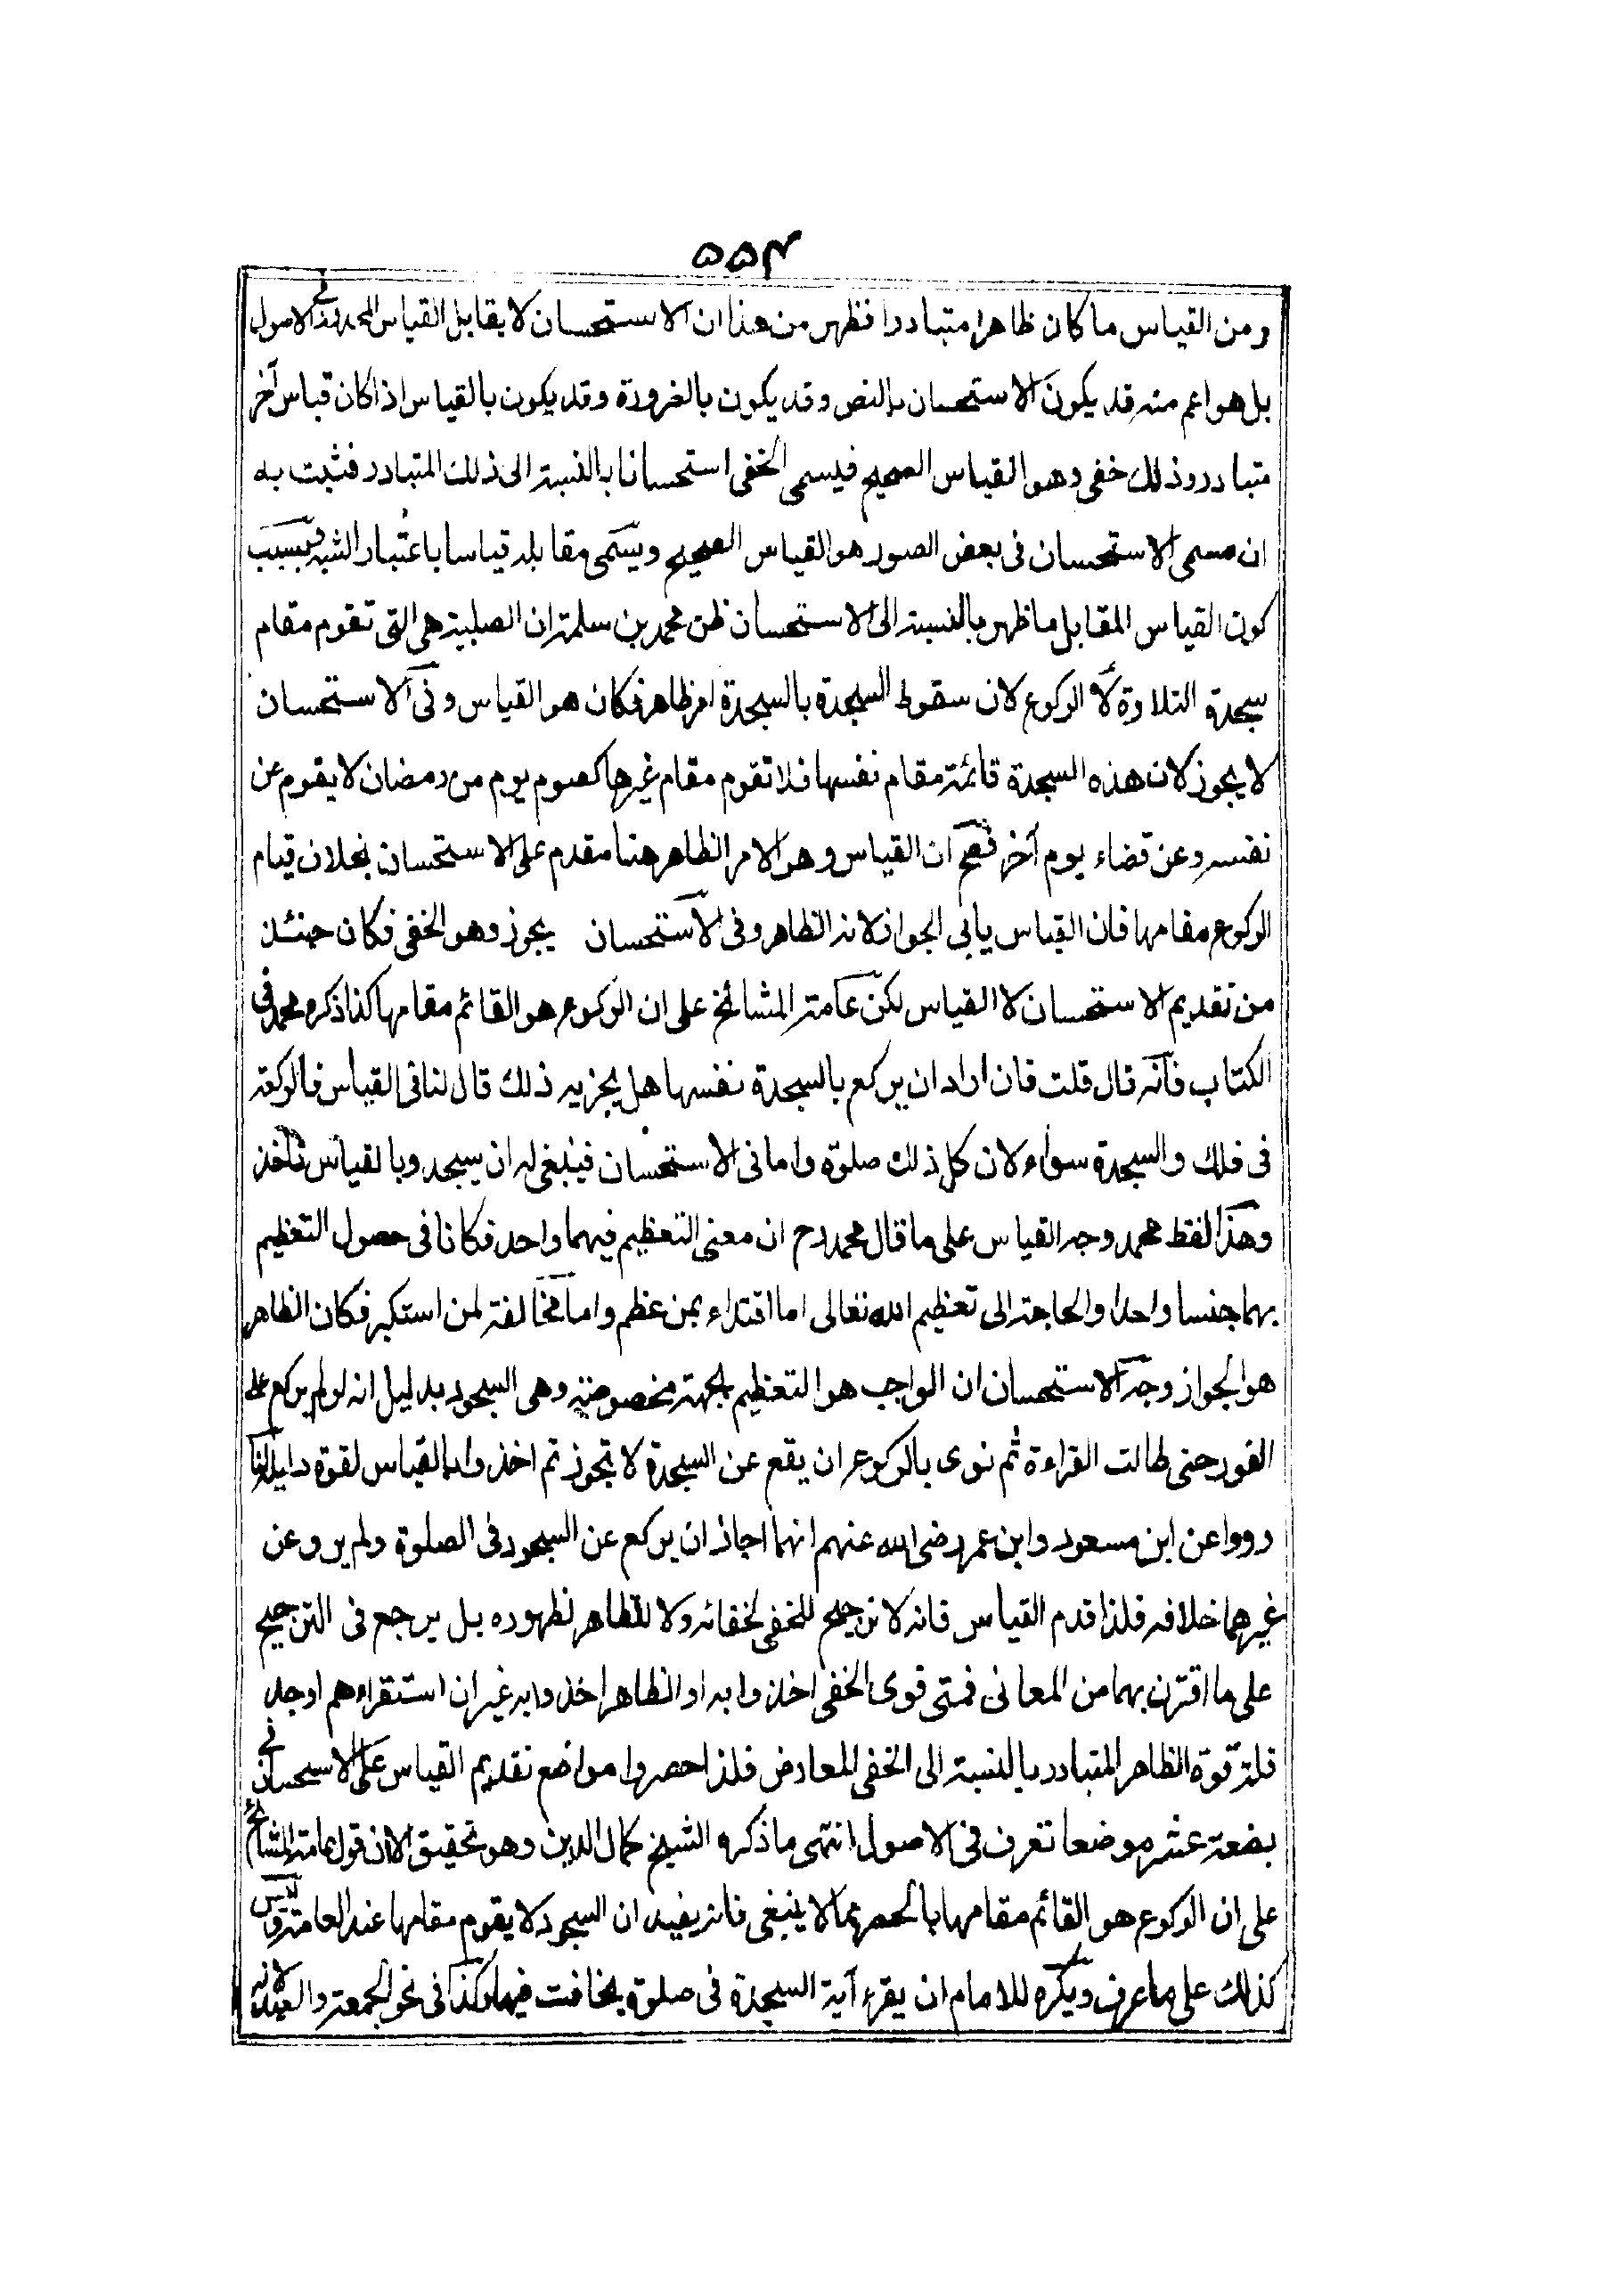 ٥٥٤
ومن القياس ما كان ظاهرا متبادرا فظهر من هذا ان الاستحسان لا يقابل القياس المحدود فى الاصول
بل هو اعم منه قد يكون الاستحسان بالنص وقد يكون بالضرورة وقد يكون بالقياس اذا كان قياس آخر
متبادر وذلك خفى وهو القياس الصحيح فيسمى الخفى استحسانا بالنسبة الى ذلك المتبادر فثبت به
ان مسمى الاستحسان فى بعض الصور هو القياس الصحيح ويسمى مقابله قياسا باعتبار الشبه وبسبب
كون القياس المقابل ما ظهر بالنسبة الى الاستحسان ظن محمد بن سلمة ان الصلبية هى التى تقوم مقام
سجدة التلاوة لا الركوع لان سقوط السجدة بالسجدة امر ظاهر فكان هو القياس وفى الاستحسان
لا يجوز لان هذه السجدة قائمة مقام نفسها فلا تقوم مقام غيرها كصوم يوم من رمضان لا يقوم عن
نفسه وعن قضاء يوم آخر فصح ان القياس وهو الامر الظاهر هنا مقدم على الاستحسان بخلاف قيام
الركوع مقامها فان القياس يأبى الجواز لانه الظاهر وفى الاستحسان يجوز وهو الخفى فكان حينئذ
من تقديم الاستحسان لا القياس لكن عامة المشائخ على ان الركوع هو القائم مقامها كذا ذكره محمد فى
الكتاب فانه قال قلت فان اراد ان يركع بالسجدة نفسها هل يجزيه ذلك قال لنا فى القياس فالركعة
فى ذلك والسجدة سواء لان كل ذلك صلوة واما فى الاستحسان فينبغى له ان يسجد وبالقياس ناخذ
وهذا لفظ محمد وجه القياس على ما قال محمد رح ان معنى التعظيم فيهما واحد فكانا فى حصول التعظيم
بهما جنسا واحدا والحاجة الى تعظيم الله تعالى اما اقتداء بمن عظم واما مخالفة لمن استكبر فكان الظاهر
هو الجواز وجه الاستحسان ان الواجب هو التعظيم بجهة مخصوصة وهى السجود بدليل انه لو لم يركع على
الفور حتى طالت القراءة ثم نوى بالركوع ان يقع عن السجدة لا تجوز ثم اخذوا بالقياس لقوة دليله لما
رووا عن ابن مسعود وابن عمر رضى الله عنهم انهما اجاز ان يركع عن السجود فى الصلوة ولم يرو عن
غيرهما خلافه فلذا قدم القياس فانه لا ترجيح للخفى لخفائه ولا للظاهر لظهوره بل يرجع فى الترجيح
على ما اقترن بهما من المعانى فمتى قوى الخفى اخذوا به او الظاهر اخذوا به غير ان استقراءهم اوجد
قلة قوة الظاهر المتبادر بالنسبة الى الخفى المعارض فلذا حصروا مواضع تقديم القياس على الاستحسان فى
بضعة عشر موضعا تعرف فى الاصول انتهى ما ذكره الشيخ كمال الدين وهو تحقيق الا ان قول عامة المشائخ
على ان الركوع هو القائم مقامها بالحصر مما لا ينبغى فانه يفيد ان السجود لا يقوم مقامها عند العامة وليس
كذلك على ما عرف ويكره للامام ان يقرء آية السجدة فى صلوة يخافت فيها وكذا فى نحو الجمعة والعيد لانه